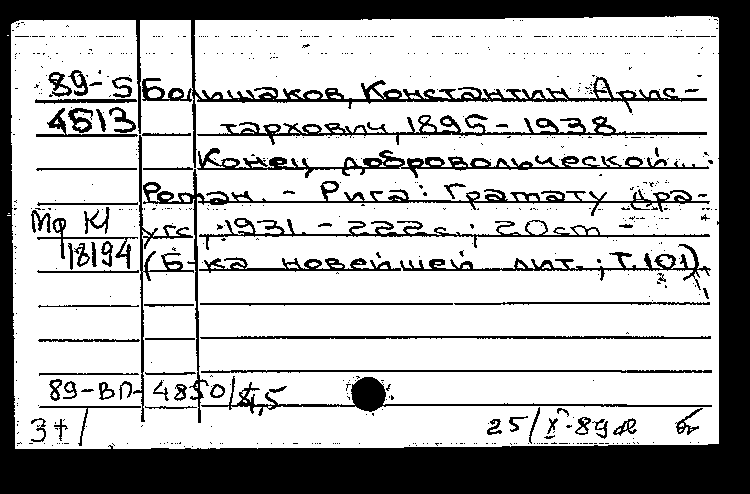 89-5 Большаков, Константин Арис-
4513 тархович, 1895-1938
Конец добровольческой...:
Роман. - Рига: Грамату дра-
Мф К1 угс, 1931. - 222с.; 20cm -
18194 (Б-ка новейшей лит.; Т.101).
89-ВП-4850
3+/ 25/X-89